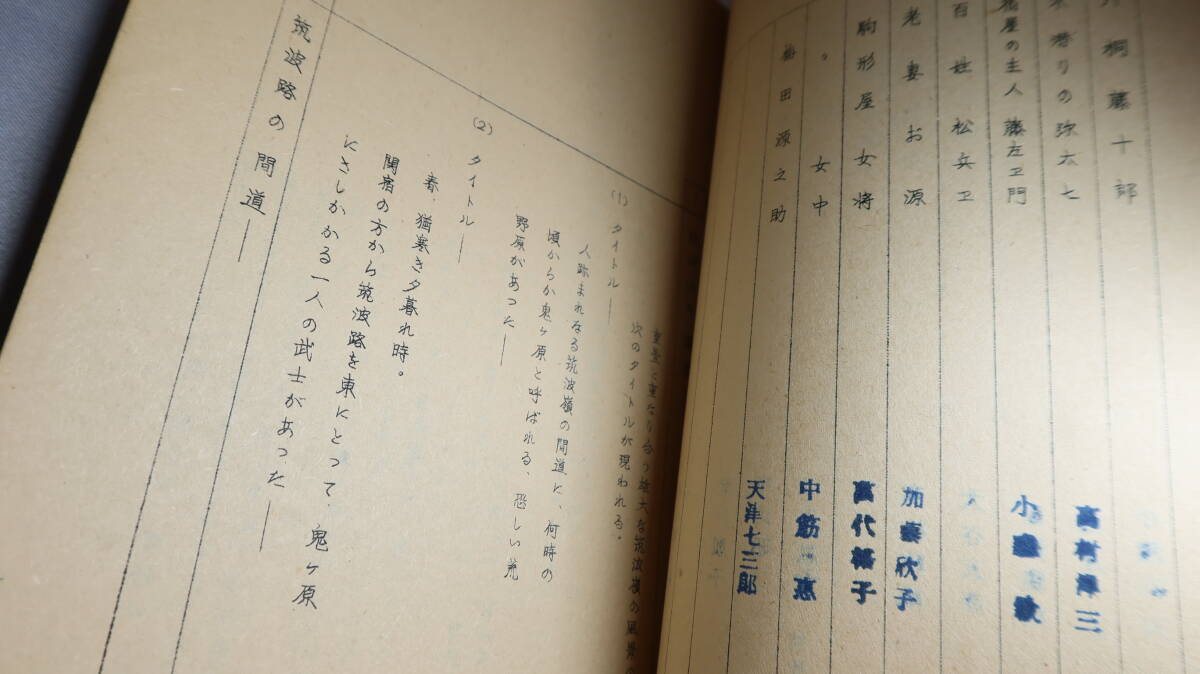 桐藤十郎
りの弥六七 高村洋三
屋の主人 藤左ヱ門 小
百姓松兵ヱ
老妻お源 加藤欣子
駒形屋女将 萬代子
〃 女中 中筋 恵
田源之助 天津七三郎
重畳と重なり合う雄大な筑波嶺の風景
次のタイトルが現われる。
(1) タイトル――
人跡まれなる筑波嶺の間道に、何時の
頃からか鬼ヶ原と呼ばれる、恐しい荒
野原があった――
(2) タイトル――
春、猶寒き夕暮れ時。
関宿の方から筑波路を東にとって、鬼ヶ原
にさしかかる一人の武士があった――
筑波路の間道――